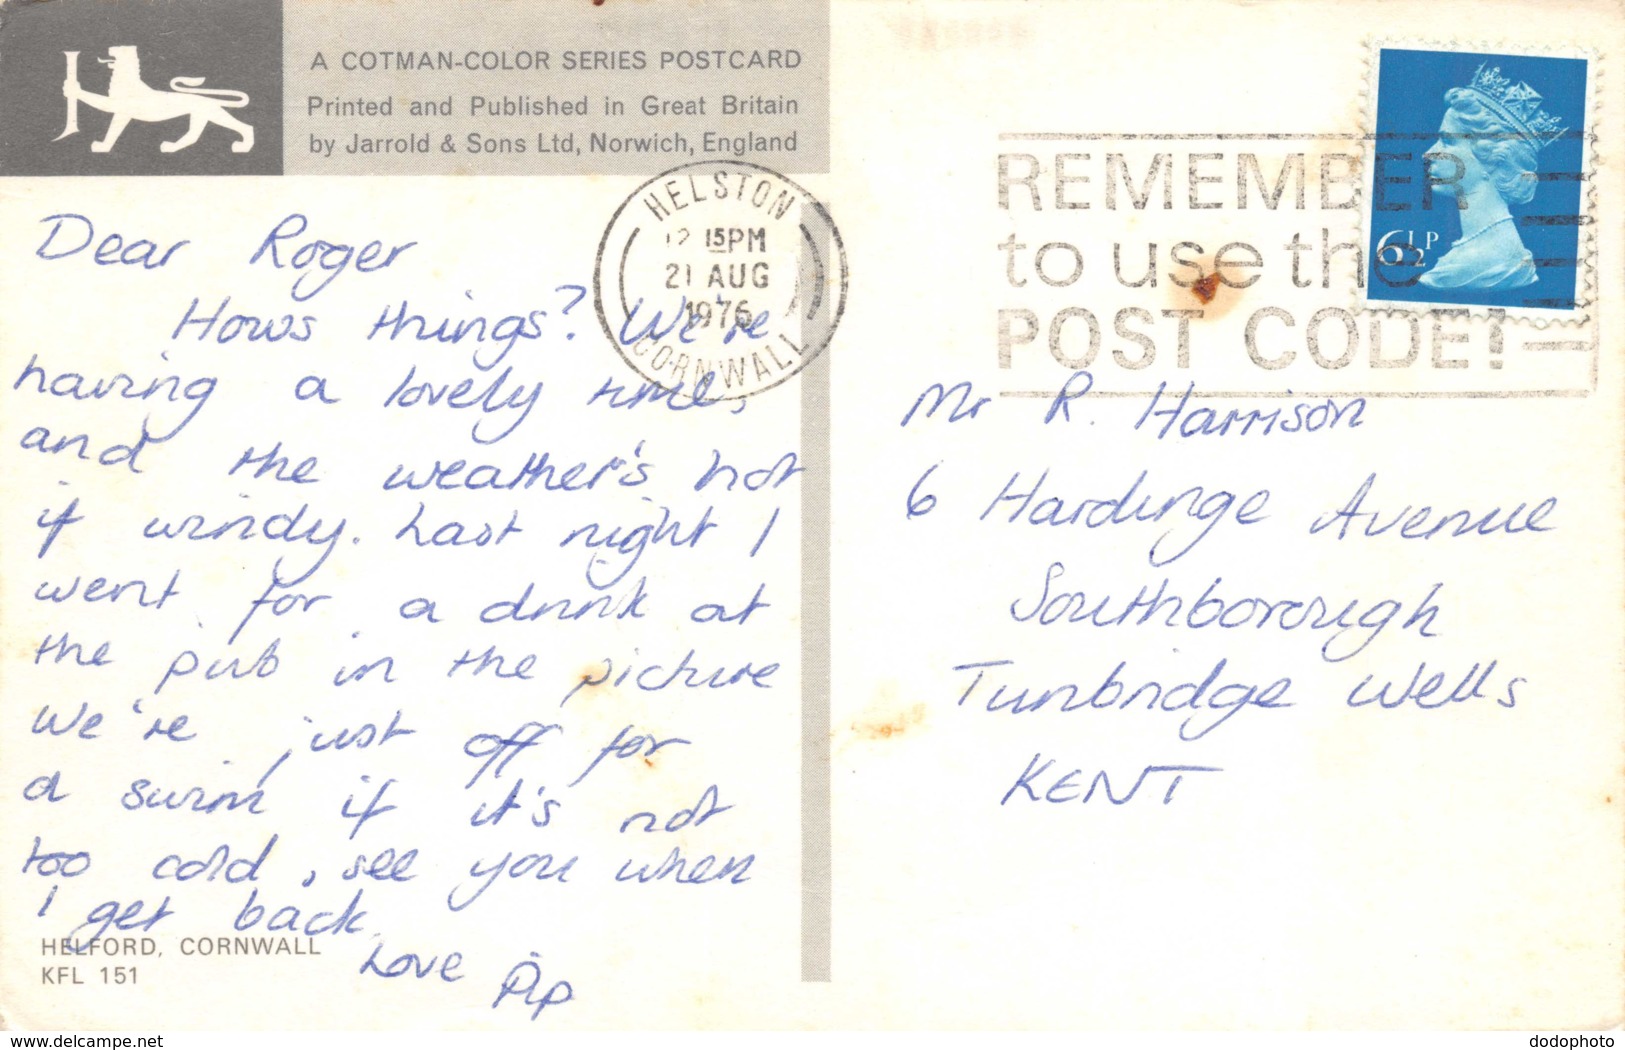 A COTMAN-COLOR SERIES POSTCARD
Printed and Published in Great Britain
by Jarrold & Sons Ltd, Norwich, England
HELSTON
12 15PM
21 AUG
1976
CORNWALL
REMEMBER
to use the
POST CODE!
6½P
Dear Roger
Hows things? We're
having a lovely time,
and the weather's hot
if windy. Last night I
went for a drink at
the pub in the picture
We're just off for
a swim if it's not
too cold, see you when
I get back.
Love Pip
HELFORD, CORNWALL
KFL 151
Mr R. Harrison
6 Hardinge Avenue
Southborough
Tunbridge Wells
KENT
www.delcampe.net
dodophoto